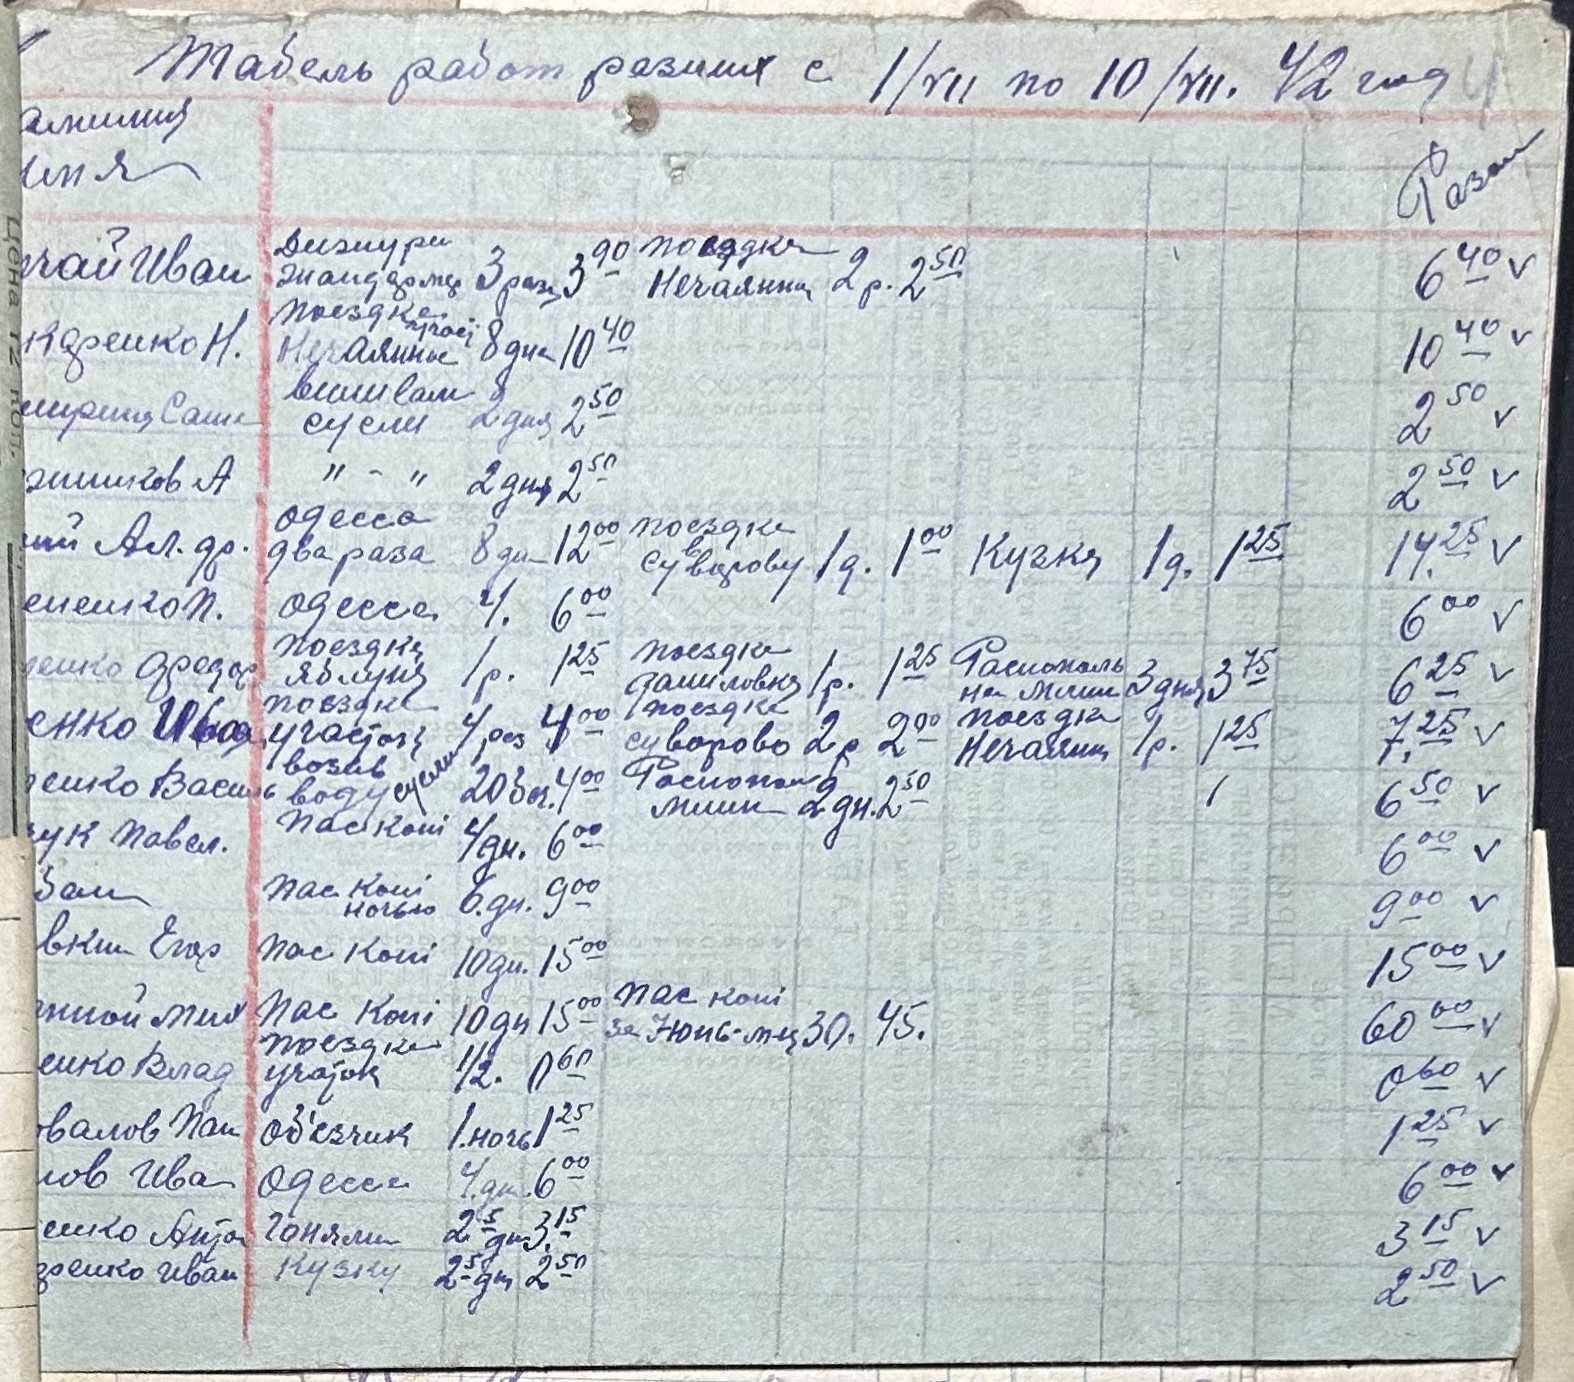 Табель работ разных с 1/VII по 10/VII. 42 год
амилия
имя
Разом
чай Иван Дижури жандармер 3 раза 3 90 поездка Нечаянна 2 р. 2 50 6 40 v
Н. поездка Нечаянное 8 дня 10 40 10 40 v
Саша виливали сусли 2 дня 2 50 2 50 v
шников А " - " 2 дня 2 50 2 50 v
ный Ал. др. одесса два раза 8 дн 12 00 поездка в суворову 1 д. 1 00 Кузня 1 д. 1 25 14. 25 v
П. одесса 4. 6 00 6 00 v
енко Федор поездка яблуня 1 р. 1 25 поездка даниловка 1 р. 1 25 на млин 3 дня 3 75 6 25 v
енко Иван поездка участок 4 раз 4 00 поездка суворово 2 р 2 00 поездка Нечаянна 1 р. 1 25 7. 25 v
енко Василь возив воду 20 4 00 млин 2 дн. 2 50 6 50 v
ук Павел. пас коні 4 дн. 6 00 6 00 v
ван пас коні ночью 6. дн. 9 00 9 00 v
вкин Егор пас коні 10 дн. 15 00 15 00 v
нной Мих пас коні 10 дн 15 00 пас коні за Июнь-мец 30. 45. 60 00 v
енко Влад поездка участок 1/2. 0 60 0 60 v
овалов Пан об'езчик 1. ночь 1 25 1 25 v
лов Иван одесса 4. дн. 6 00 6 00 v
енко Антон гоняли 2 5 дн 3. 15 3 15 v
ренко Иван кузку 2 5 дн 2 50 2 50 v
Цена 12 коп.